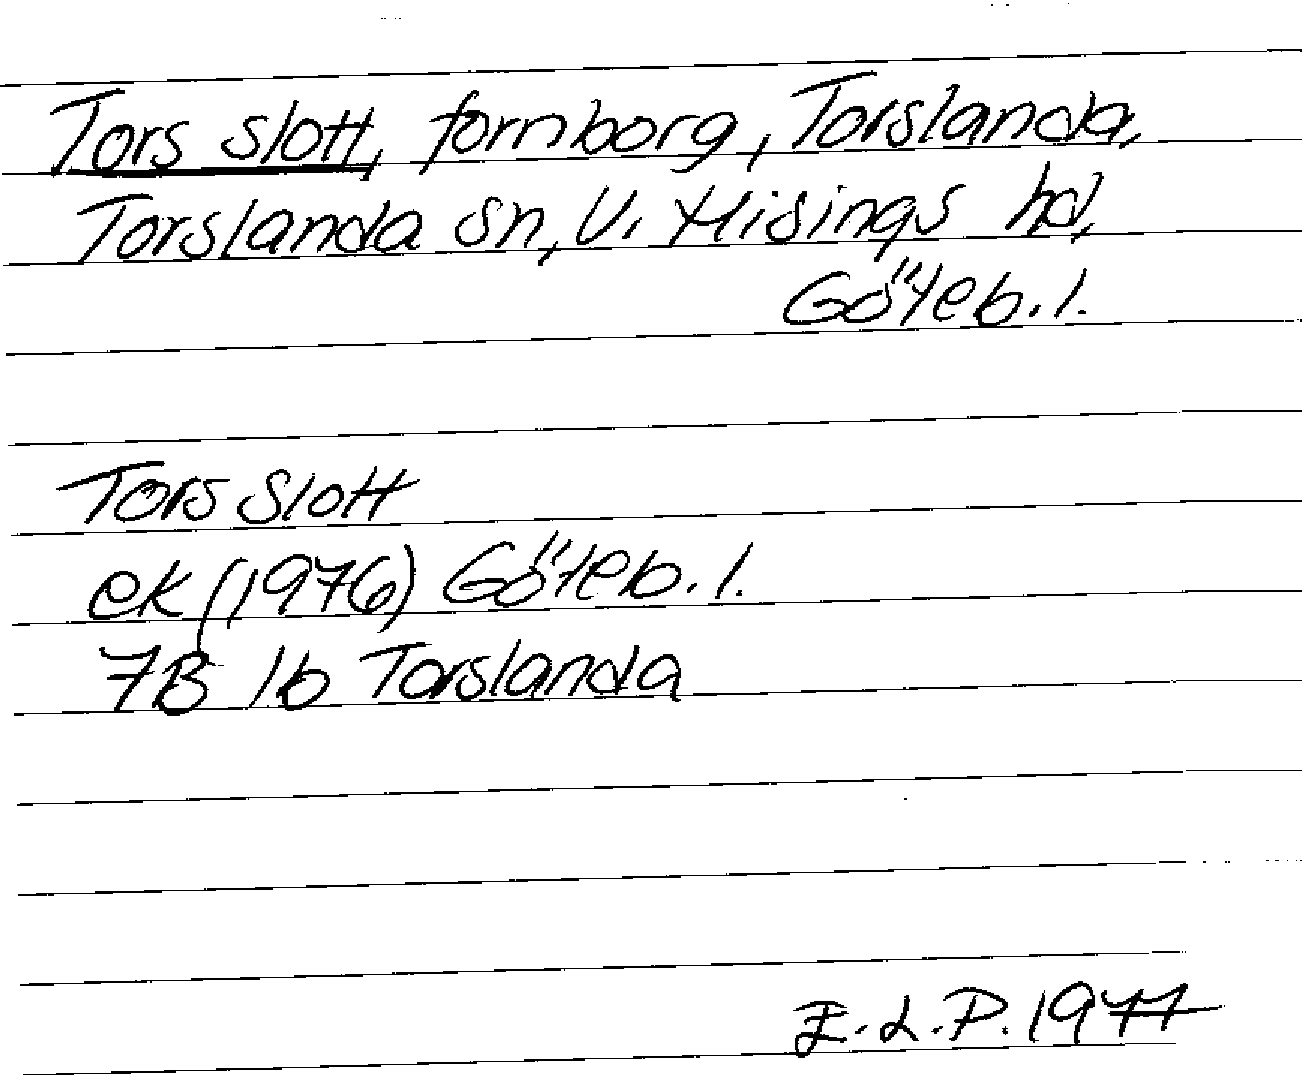 Tors slott, fornborg, Torslanda,
Torslanda sn, V. Hisings hd,
Göteb. l.
Tors Slott
ek (1976) Göteb. l.
7B 1b Torslanda
E. L. P. 1977